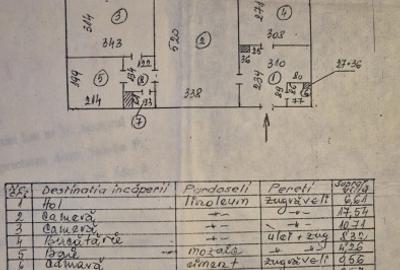 3
314
343
520
2
271
4
308
36
310
234
1
80
27×36
89
77
199
5
214
194
122
8
133
338
7
Destinatia incăperii Pardoseli Pereti
1 Hol linoleum zugrăveli 6,61
2 Cameră -"- -"- 17,54
3 Cameră -"- -"- 10,71
4 Bucătărie -"- ulei + zug 8,32
5 Baie mozaic -"- 4,26
6 Cămară ciment zugrăveli 0,56